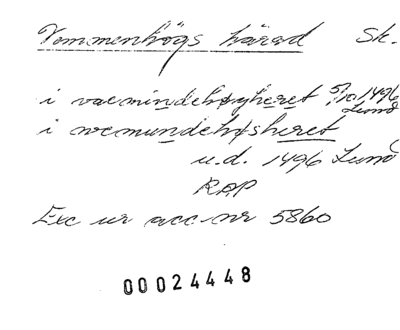 Vemmenhögs härad Sk.
i væmindehøgheret 5/10 1496 Lund
i wemundehøsheret
u.d. 1496 Lund
RAP
Exc ur acc-nr 5860
00024448